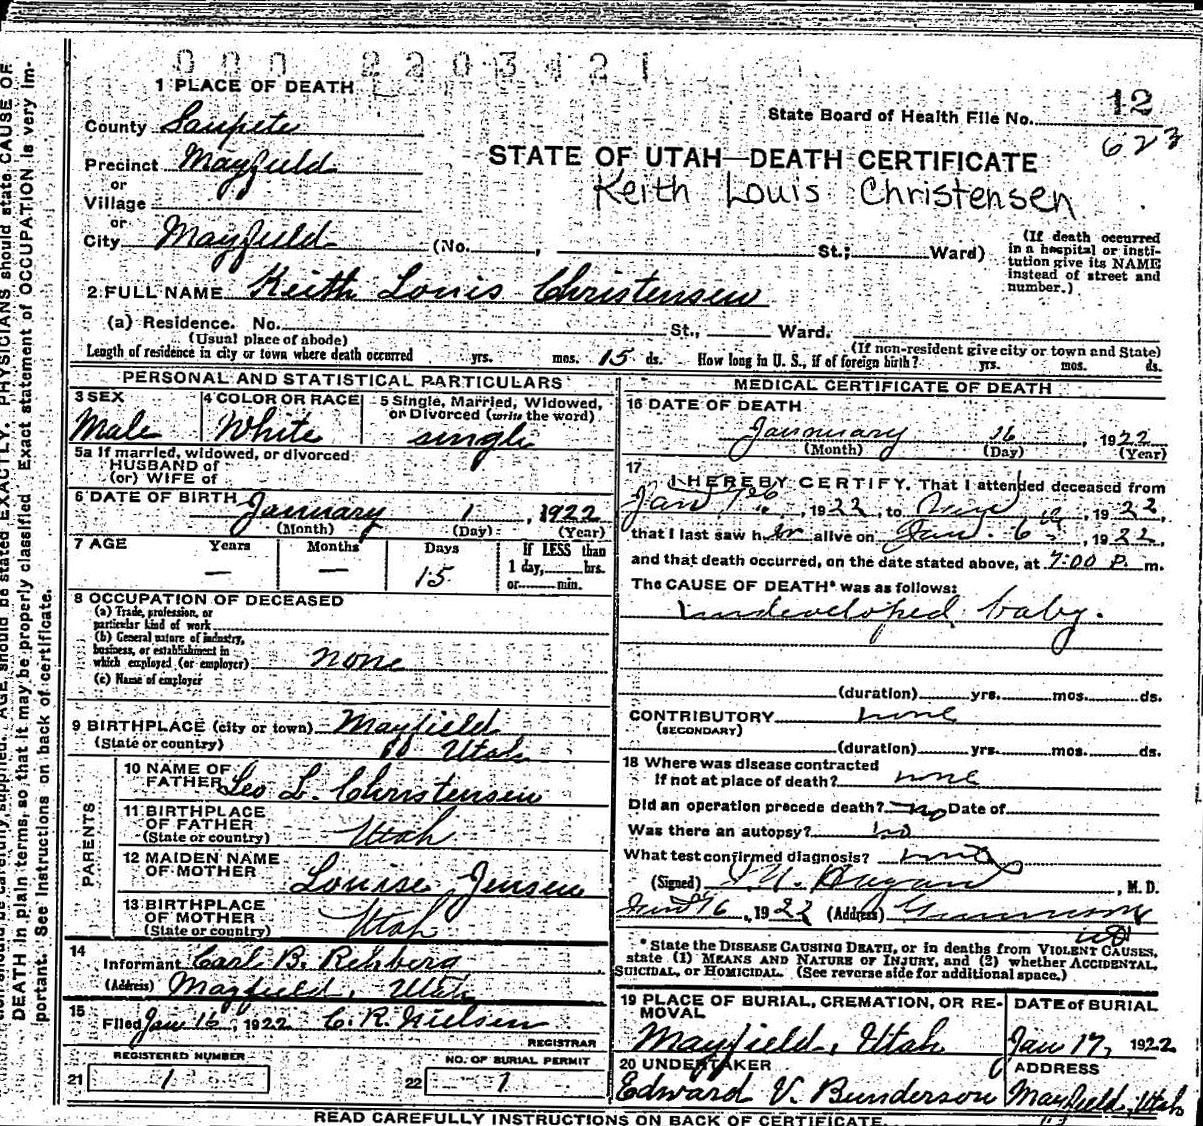 000 2203421
1 PLACE OF DEATH
State Board of Health File No. 12
623
County Sanpete
Precinct Mayfield
STATE OF UTAH—DEATH CERTIFICATE
or
Village
Keith Louis Christensen
or
City Mayfield (No. , St.; Ward)
(If death occurred in a hospital or insti-
tution give its NAME instead of street and number.)
2 FULL NAME Keith Louis Christensen
(a) Residence. No. St., Ward.
(Usual place of abode) (If non-resident give city or town and State)
Length of residence in city or town where death occurred yrs. mos. 15 ds. How long in U. S., if of foreign birth? yrs. mos. ds.
PERSONAL AND STATISTICAL PARTICULARS
3 SEX Male
4 COLOR OR RACE White
5 Single, Married, Widowed, or Divorced (write the word) single
5a If married, widowed, or divorced
HUSBAND of
(or) WIFE of
6 DATE OF BIRTH January 1, 1922
(Month) (Day) (Year)
7 AGE Years Months Days If LESS than
— — 15 1 day, hrs.
or min.
8 OCCUPATION OF DECEASED
(a) Trade, profession, or
particular kind of work
(b) General nature of industry,
business, or establishment in
which employed (or employer) none
(c) Name of employer
9 BIRTHPLACE (city or town) Mayfield
(State or country) Utah
PARENTS
10 NAME OF FATHER Leo L. Christensen
11 BIRTHPLACE OF FATHER
(State or country) Utah
12 MAIDEN NAME OF MOTHER Louise Jensen
13 BIRTHPLACE OF MOTHER
(State or country) Utah
14
Informant Carl B. Rehberg
(Address) Mayfield, Utah
15
Filed Jan 16, 1922 C. R. Nielsen
REGISTRAR
REGISTERED NUMBER
21 1
NO. OF BURIAL PERMIT
22 1
MEDICAL CERTIFICATE OF DEATH
16 DATE OF DEATH
January 16, 1922
(Month) (Day) (Year)
17
I HEREBY CERTIFY, That I attended deceased from
Jan , 1922, to , 1922,
that I last saw h alive on Jan. 6th, 1922,
and that death occurred, on the date stated above, at 7:00 P. m.
The CAUSE OF DEATH* was as follows:
undeveloped baby.
(duration) yrs. mos. ds.
CONTRIBUTORY none
(SECONDARY)
(duration) yrs. mos. ds.
18 Where was disease contracted
If not at place of death? none
Did an operation precede death? no Date of
Was there an autopsy? no
What test confirmed diagnosis?
(Signed) , M. D.
16, 1922 (Address) Gunnison
*State the DISEASE CAUSING DEATH, or in deaths from VIOLENT CAUSES,
state (1) MEANS AND NATURE OF INJURY, and (2) whether ACCIDENTAL,
SUICIDAL, or HOMICIDAL. (See reverse side for additional space.)
19 PLACE OF BURIAL, CREMATION, OR RE-
MOVAL
Mayfield, Utah
DATE of BURIAL
Jan 17, 1922
20 UNDERTAKER
Edward V. Bunderson
ADDRESS
Mayfield, Utah
READ CAREFULLY INSTRUCTIONS ON BACK OF CERTIFICATE.
should be carefully supplied. AGE should be stated EXACTLY. PHYSICIANS should state CAUSE OF
DEATH in plain terms, so that it may be properly classified. Exact statement of OCCUPATION is very im-
portant. See instructions on back of certificate.